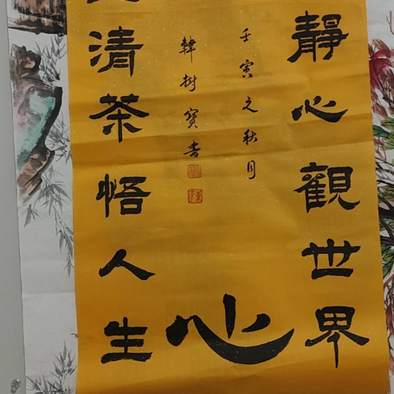 靜心觀世界
壬寅之秋月
韓樹寶書
清茶悟人生
心